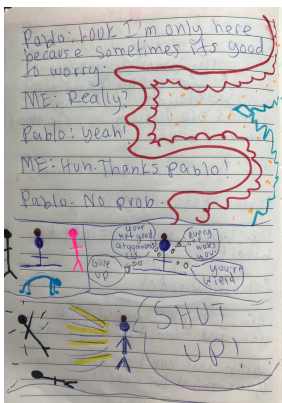 Pablo: Look I'm only here
because sometimes its good
to worry.
ME: Really?
Pablo: yeah!
ME: Huh. Thanks pablo!
Pablo. No prob.
your
not good
at gymnastics
every
one
hates
you!
Give
up
you're
wierd
SHUT
UP!